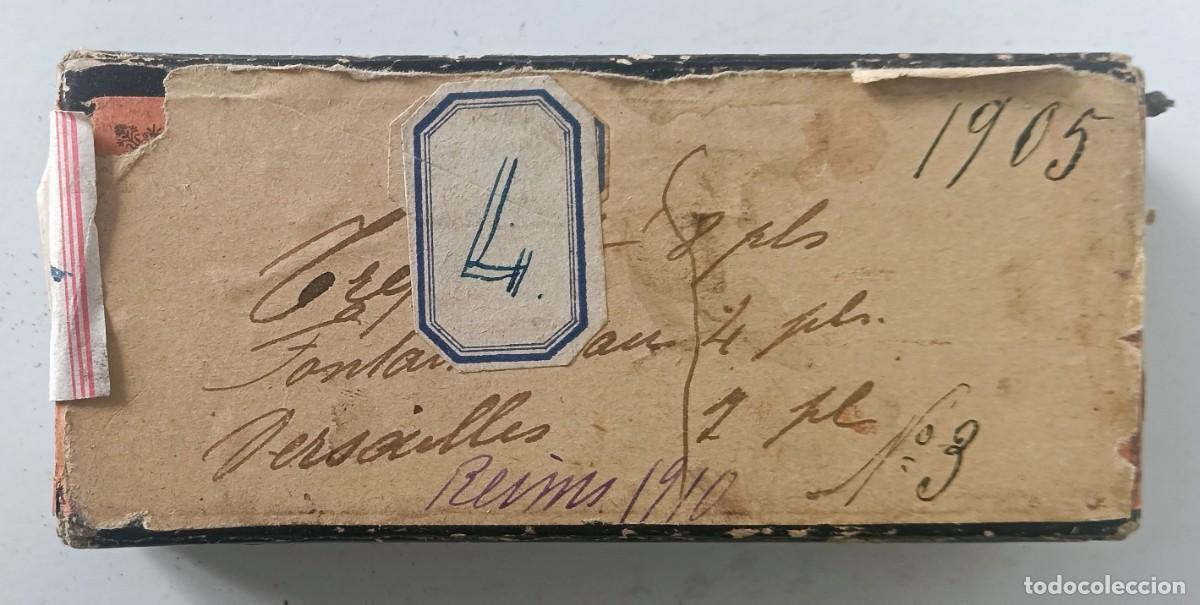 1905
4.
8 pls
Fontai au 4 pls.
Versailles 1 pl
Nº 3
Reims 1910
todocoleccion